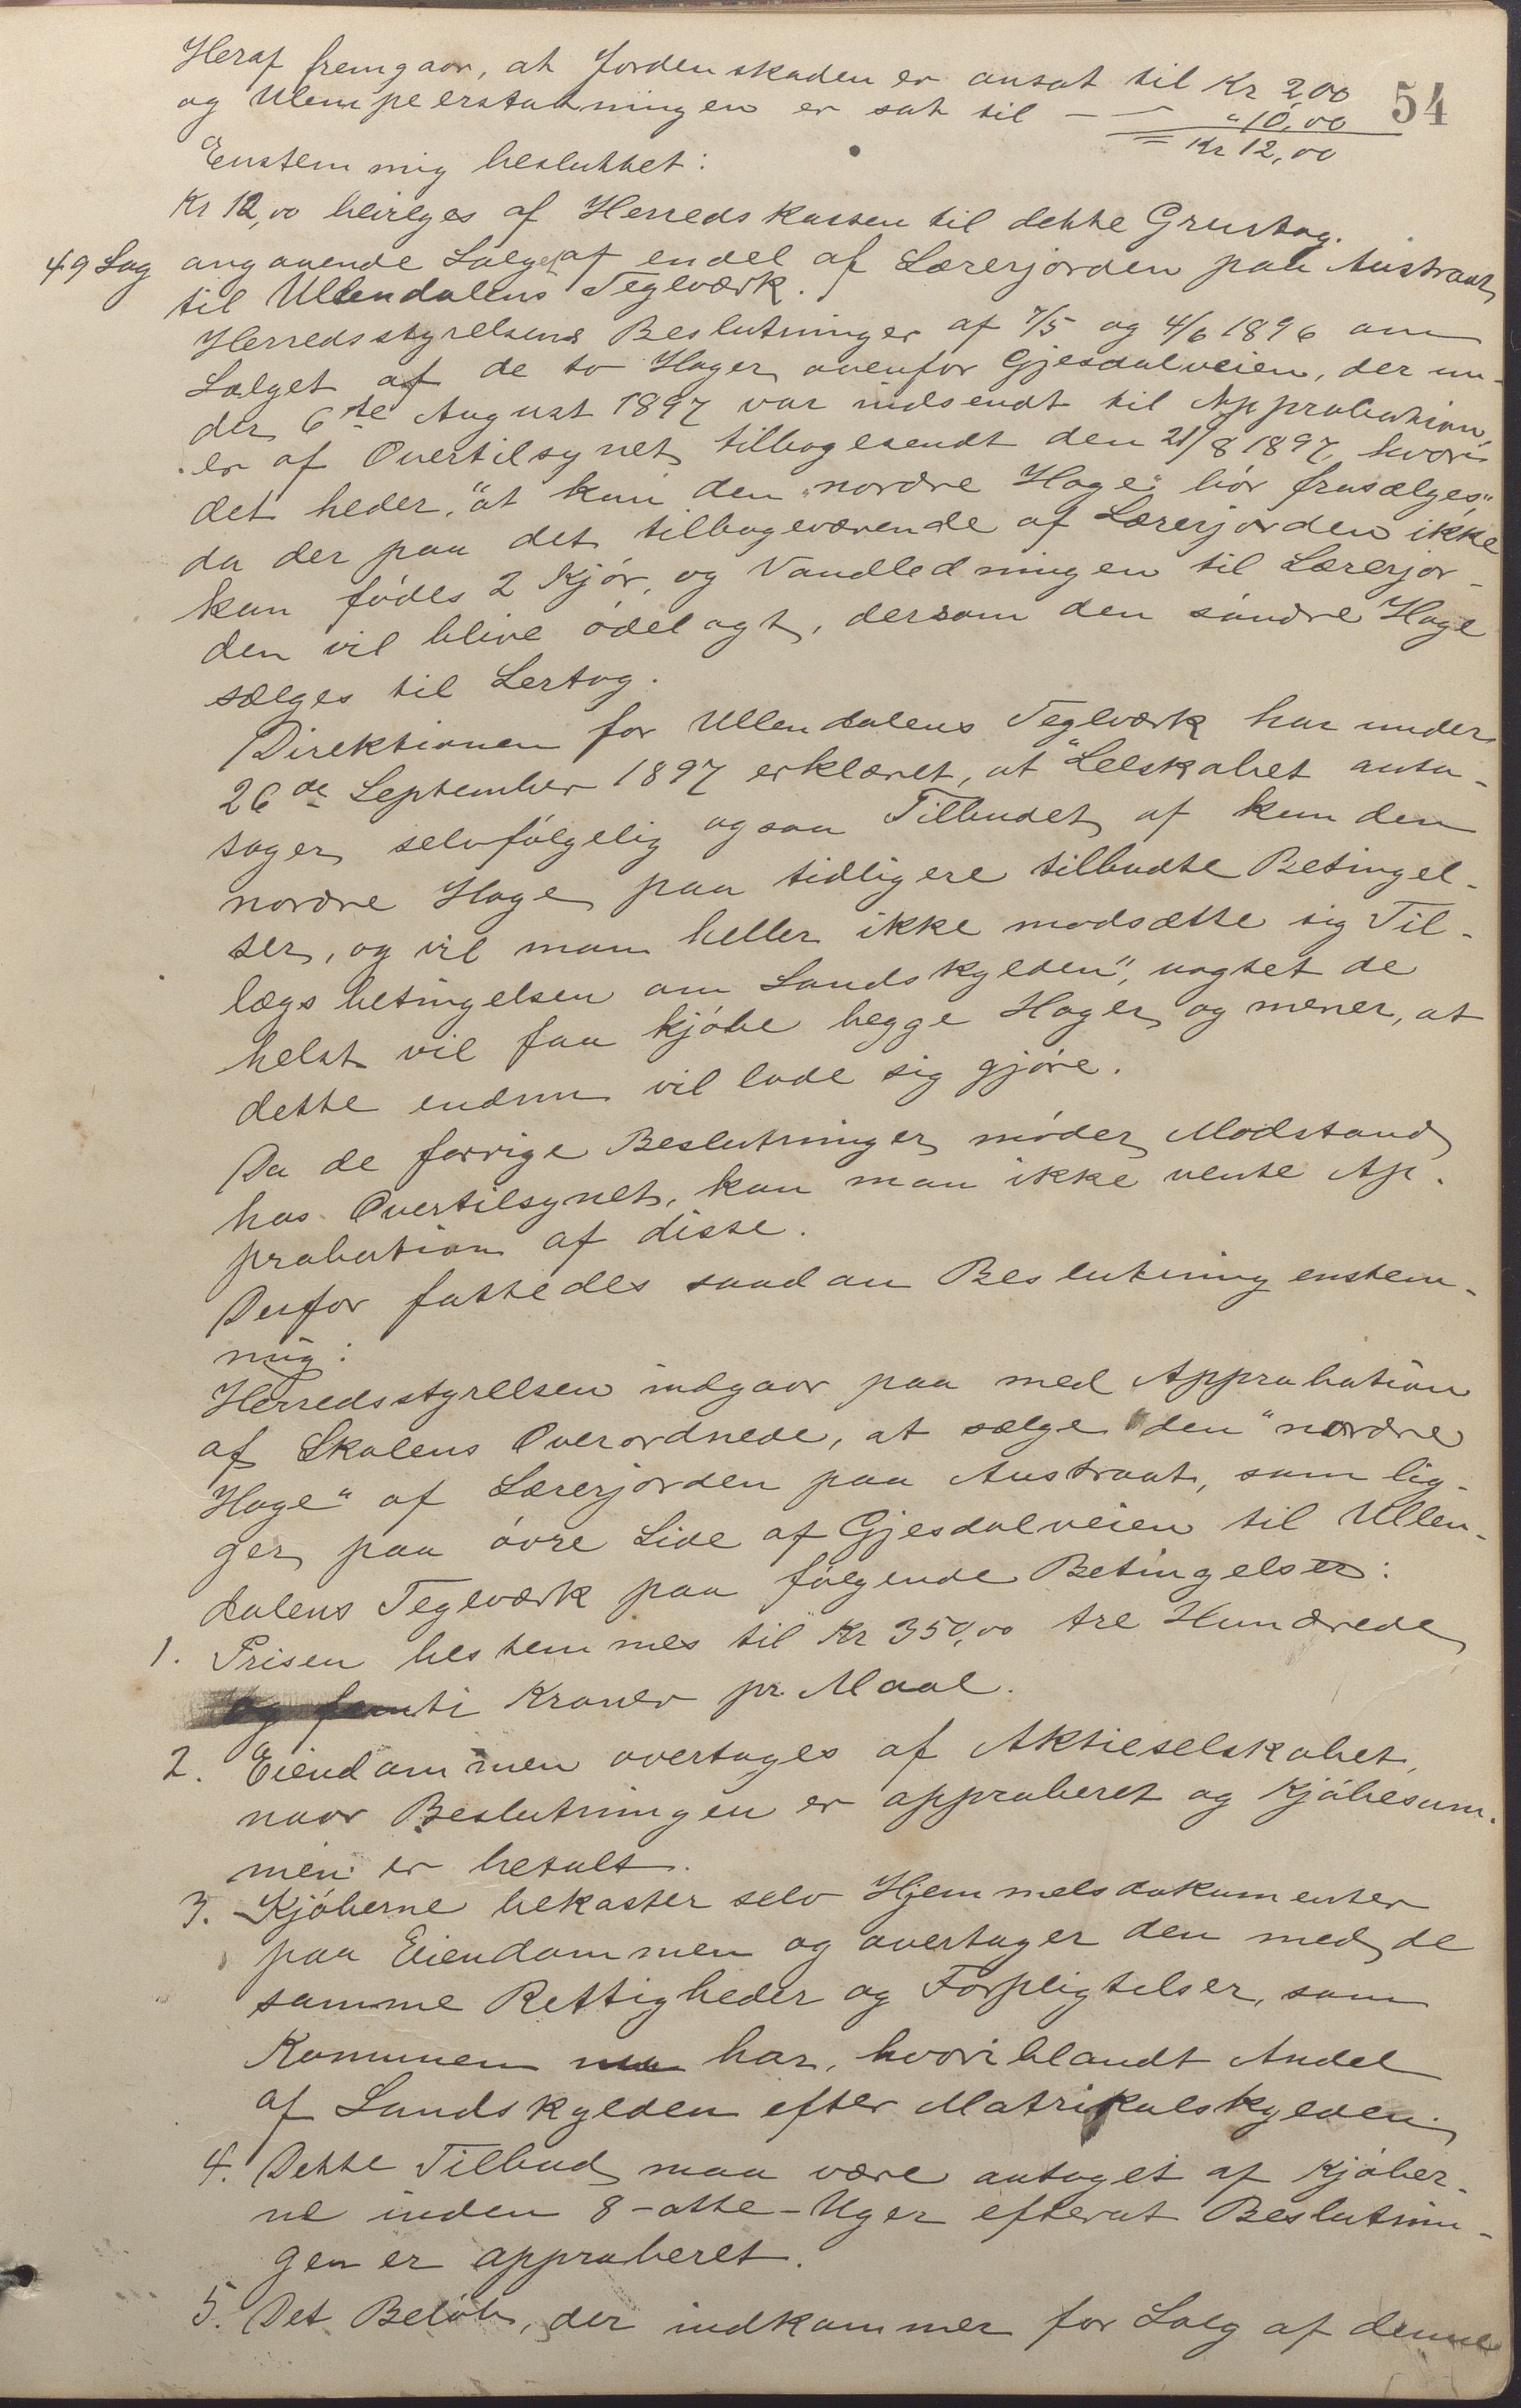 Heraf fremgaar, at Jordenskaden er ansat til Kr 2,00
og Ulempeerstatningen er sat til — — " 10,00
54
= Kr 12,00
Enstemmig besluttet:
Kr 12,00 bevilges af Herredskassen til dette Grustag.
49 Sag angaaende Salget af endel af Lærerjorden paa Austraat
til Ullendalens Teglværk.
Herredsstyrelsens Beslutninger af 7/5 og 4/6 1896 om
Salget af de to Hager ovenfor Gjesdalveien, der un-
der 6te August 1897 var indsendt til Approbation,
er af Overtilsynet tilbagesendt den 21/8 1897, hvori
det heder, "at kun den "nordre Hage" bör frasælges",
da der paa det tilbageværende af Lærerjorden ikke
kan födes 2 Kjör, og Vandledningen til Lærerjor-
den vil blive ödelagt, dersom den söndre Hage
sælges til Lertag.
Direktionen for Ullendalens Teglværk har under
26de September 1897 erklæret, at "Selskabet anta-
tager selvfölgelig ogsaa Tilbudet af kun den
nordre Hage paa tidligere tilbudte Betingel-
ser, og vil man heller ikke modsætte sig Til-
lægsbetingelsen om Landskylden", uagtet de
helst vil faa kjöbe begge Hager og mener, at
dette endnu vil lade sig gjöre.
Da de forrige Beslutninger möder Modstand
hos Overtilsynet, kan man ikke vente Ap-
probation af disse.
Derfor fattedes saadan Beslutning enstem-
mig:
Herredsstyrelsen indgaar paa med Approbation
af Skolens Overordnede, at sælge den "nordre
Hage" af Lærerjorden paa Austraat, som lig-
ger paa övre Side af Gjesdalveien til Ullen-
dalens Teglværk paa fölgende Betingelser:
1. Prisen bestemmes til Kr 350,00 tre Hundrede
og femti Kroner pr. Maal.
2. Eiendommen overtages af Aktieselskabet,
naar Beslutningen er approberet og Kjöbesum-
men er betalt.
3. Kjöberne bekoster selv Hjemmelsdokumenter
paa Eiendommen og overtager den med de
samme Rettigheder og Forpligtelser, som
Kommunen nu har, hvoriblandt Andel
af Landskylden efter Matrikulskylden.
4. Dette Tilbud maa være antaget af Kjöber-
ne inden 8-otte-Uger efterat Beslutnin-
gen er approberet.
5. Det Belöb, der indkommer for Salg af denne